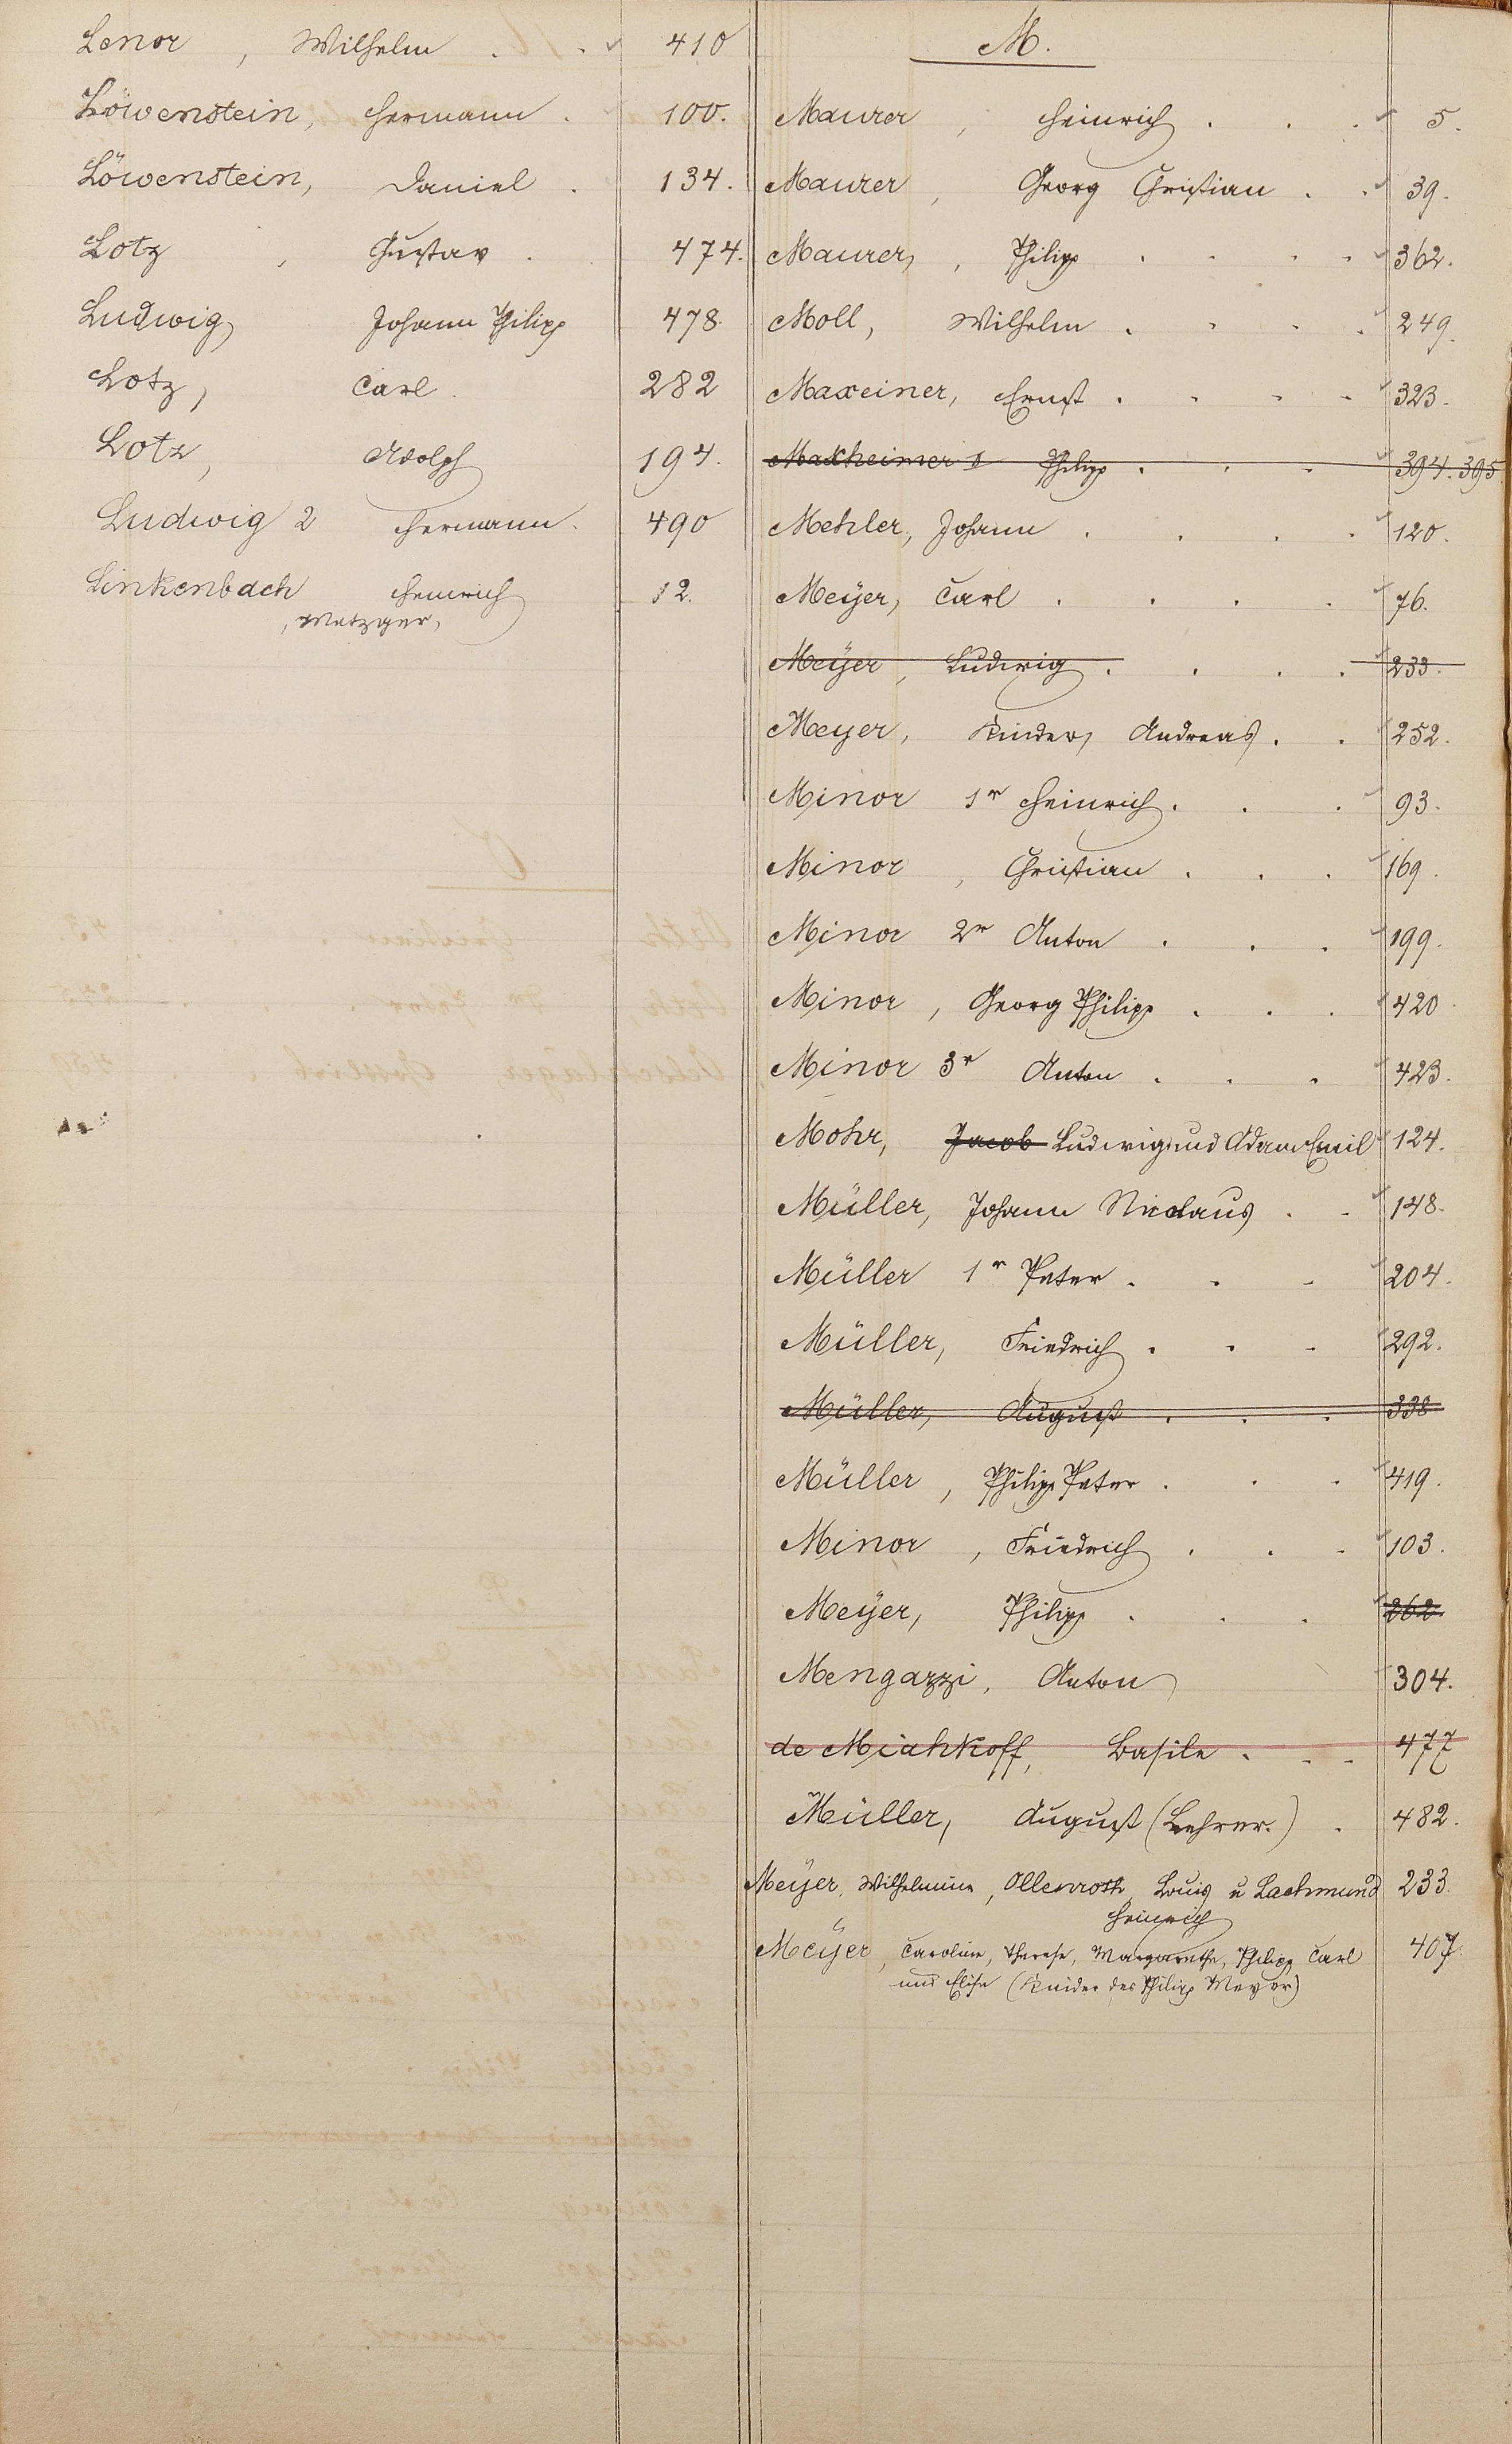 Lenor, Wilhelm . . 410
Löwenstein, Hermann . 100.
Löwenstein, Daniel . 134.
Lotz, Gustav . 474.
Ludwig, Johann Philipp 478.
Lotz, Carl . 282
Lotz, Adolph 194.
Ludwig 2 Hermann. 490
Linkenbach Heinrich 12.
, Metzger,
M.
Maurer, Heinrich . . . 5.
Maurer, Georg Christian . . 39.
Maurer, Philipp . . . . 362.
Moll, Wilhelm . . . . 249.
Maxeiner, Ernst . . . . 323.
Maxheimer 1 Philipp . . . 394. 395
Mehler, Johann . . . . 120.
Meÿer, Carl . . . . 76.
Meÿer, Ludwig . . . . 233.
Meyer, Kinder, Andreas . . 252.
Minor 1r Heinrich . . . 93.
Minor, Christian . . . 169.
Minor 2r Anton . . . 199.
Minor, Georg Philipp . . . 420
Minor 3r Anton . . . 423.
Mohr, Jacob Ludwig und Adam Emil 124.
Müller, Johann Nicolaus . . 148.
Müller 1r Peter . . . 204.
Müller, Friedrich . . . 292.
Müller, August . . . 338
Müller, Philipp Peter . . . 419.
Minor, Friedrich . . . 103.
Meÿer, Philipp . . . 262.
Mengazzi, Anton 304.
de Miahkoff, Basile . . . 477
Müller, August (Lehrer.) . 482.
Meÿer, Wilhelmine, Ollenroth, Louis u Lachmund 233.
Heinrich
Meÿer, Caroline, Therese, Margarethe, Philipp, Carl 407.
und Elise (Kinder des Philipp Meyer)